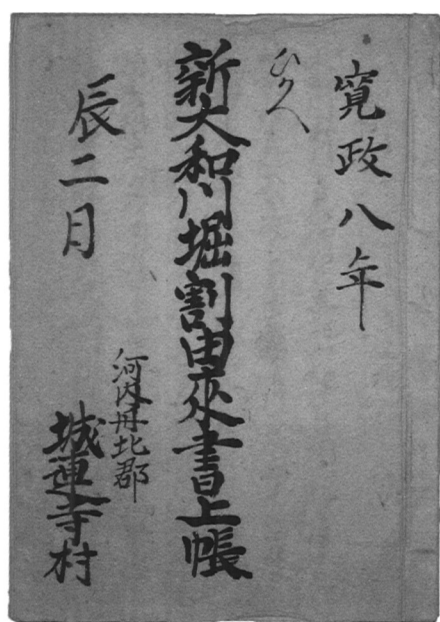 寛政八年
ひかへ
新大和川堀割由来書上帳
河内丹北郡
城蓮寺村
辰二月